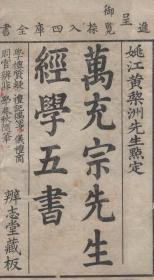 進呈御覽採入四庫全書
姚江黃棃洲先生點定
萬充宗先生
經學五書
學禮質疑 禮記偶箋 儀禮商
周官辨非 學春秋隨筆
辨志堂藏板